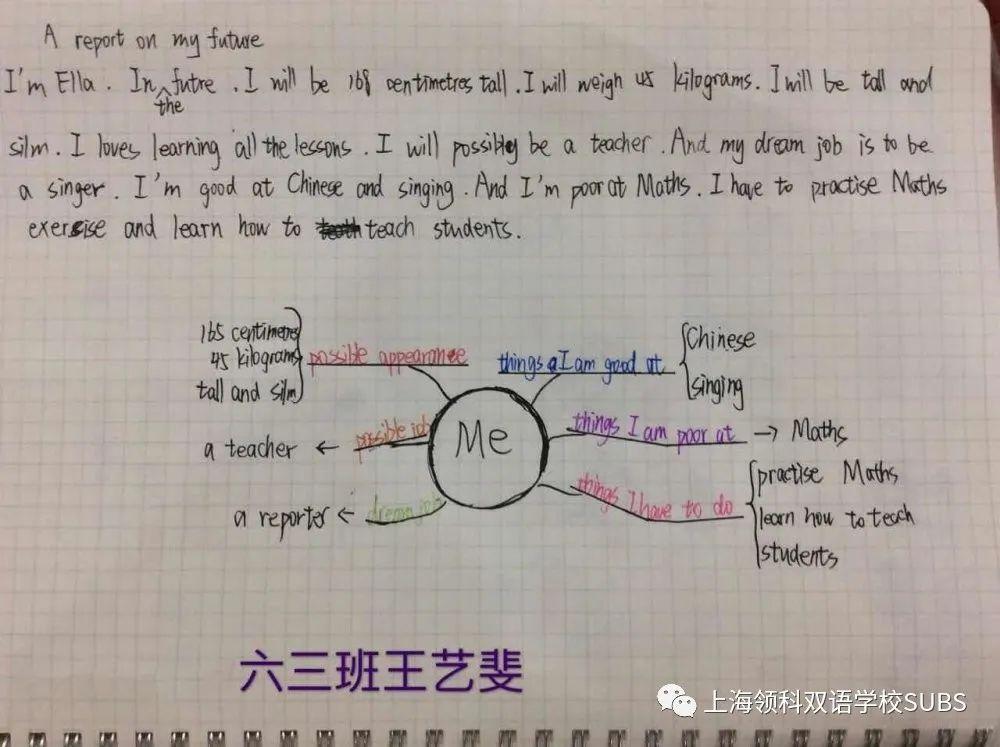 A report on my future
I'm Ella. In the futre. I will be 168 centimetres tall. I will weigh 45 kilograms. I will be tall and
silm. I loves learning all the lessons. I will possibly be a teacher. And my dream job is to be
a singer. I'm good at Chinese and singing. And I'm poor at Maths. I have to practise Maths
exersise and learn how to teach students.
165 centimetres
45 kilograms
tall and silm
possible appearance
things I am good at
Chinese
singing
Me
a teacher ← possible job
things I am poor at → Maths
a reporter ← dream job
things I have to do
practise Maths
learn how to teach
students
六三班王艺斐
上海领科双语学校SUBS